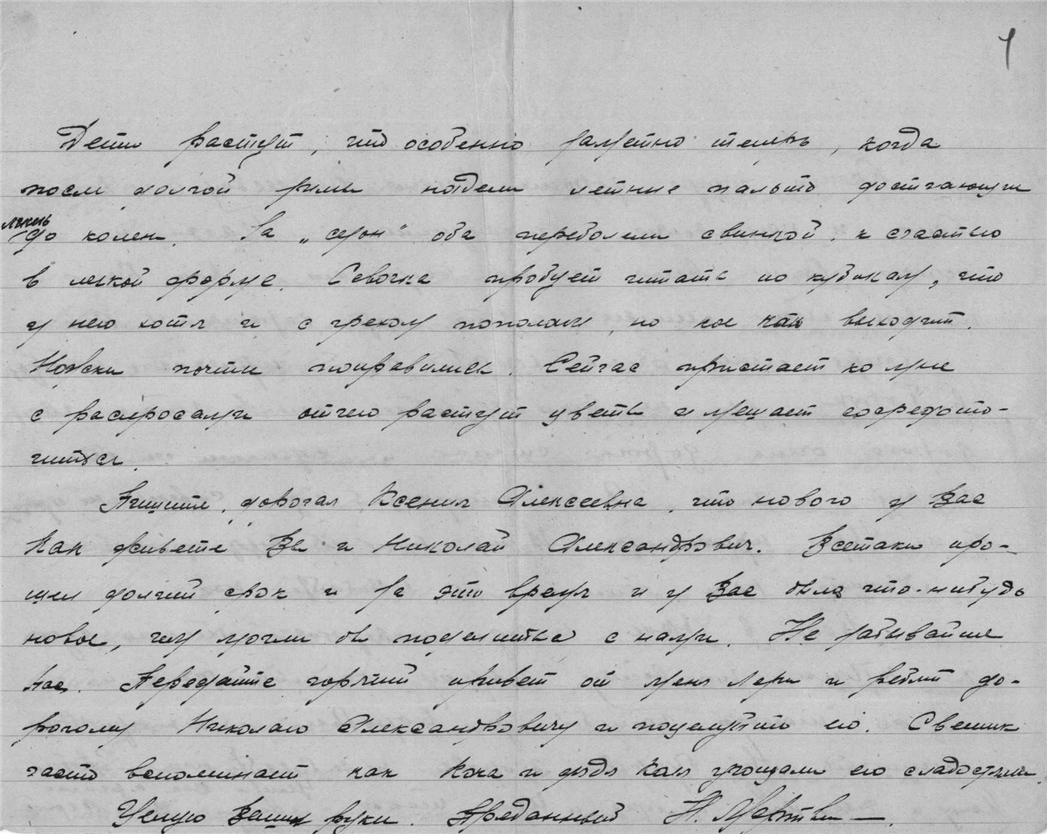 1
Дети растут, что особенно заметно теперь, когда
после долгой зимы надели летние пальто достигающие
лишь
до колен. За „сезон" оба переболели свинкой, к счастью
в легкой форме. Севочка пробует читать по кубикам, что
у него хотя и с грехом пополам, но кое как выходит.
Ножки почти поправились. Сейчас пристает ко мне
с расспросами отчего растут цветы и мешает сосредото-
читься.
Пишите, дорогая Ксения Алексеевна, что нового у Вас
Как живете Вы и Николай Александрович. Всетаки про-
шел долгий срок и за это время и у Вас было что-нибудь
новое, чем могли бы поделиться с нами. Не забывайте
нас. Передайте горячий привет от меня Леры и ребят до-
рогому Николаю Александровичу и поцелуйте его. Светик
часто вспоминает как и дядя Коля угощали его сладостями.
Целую Ваши руки. Преданный Н.